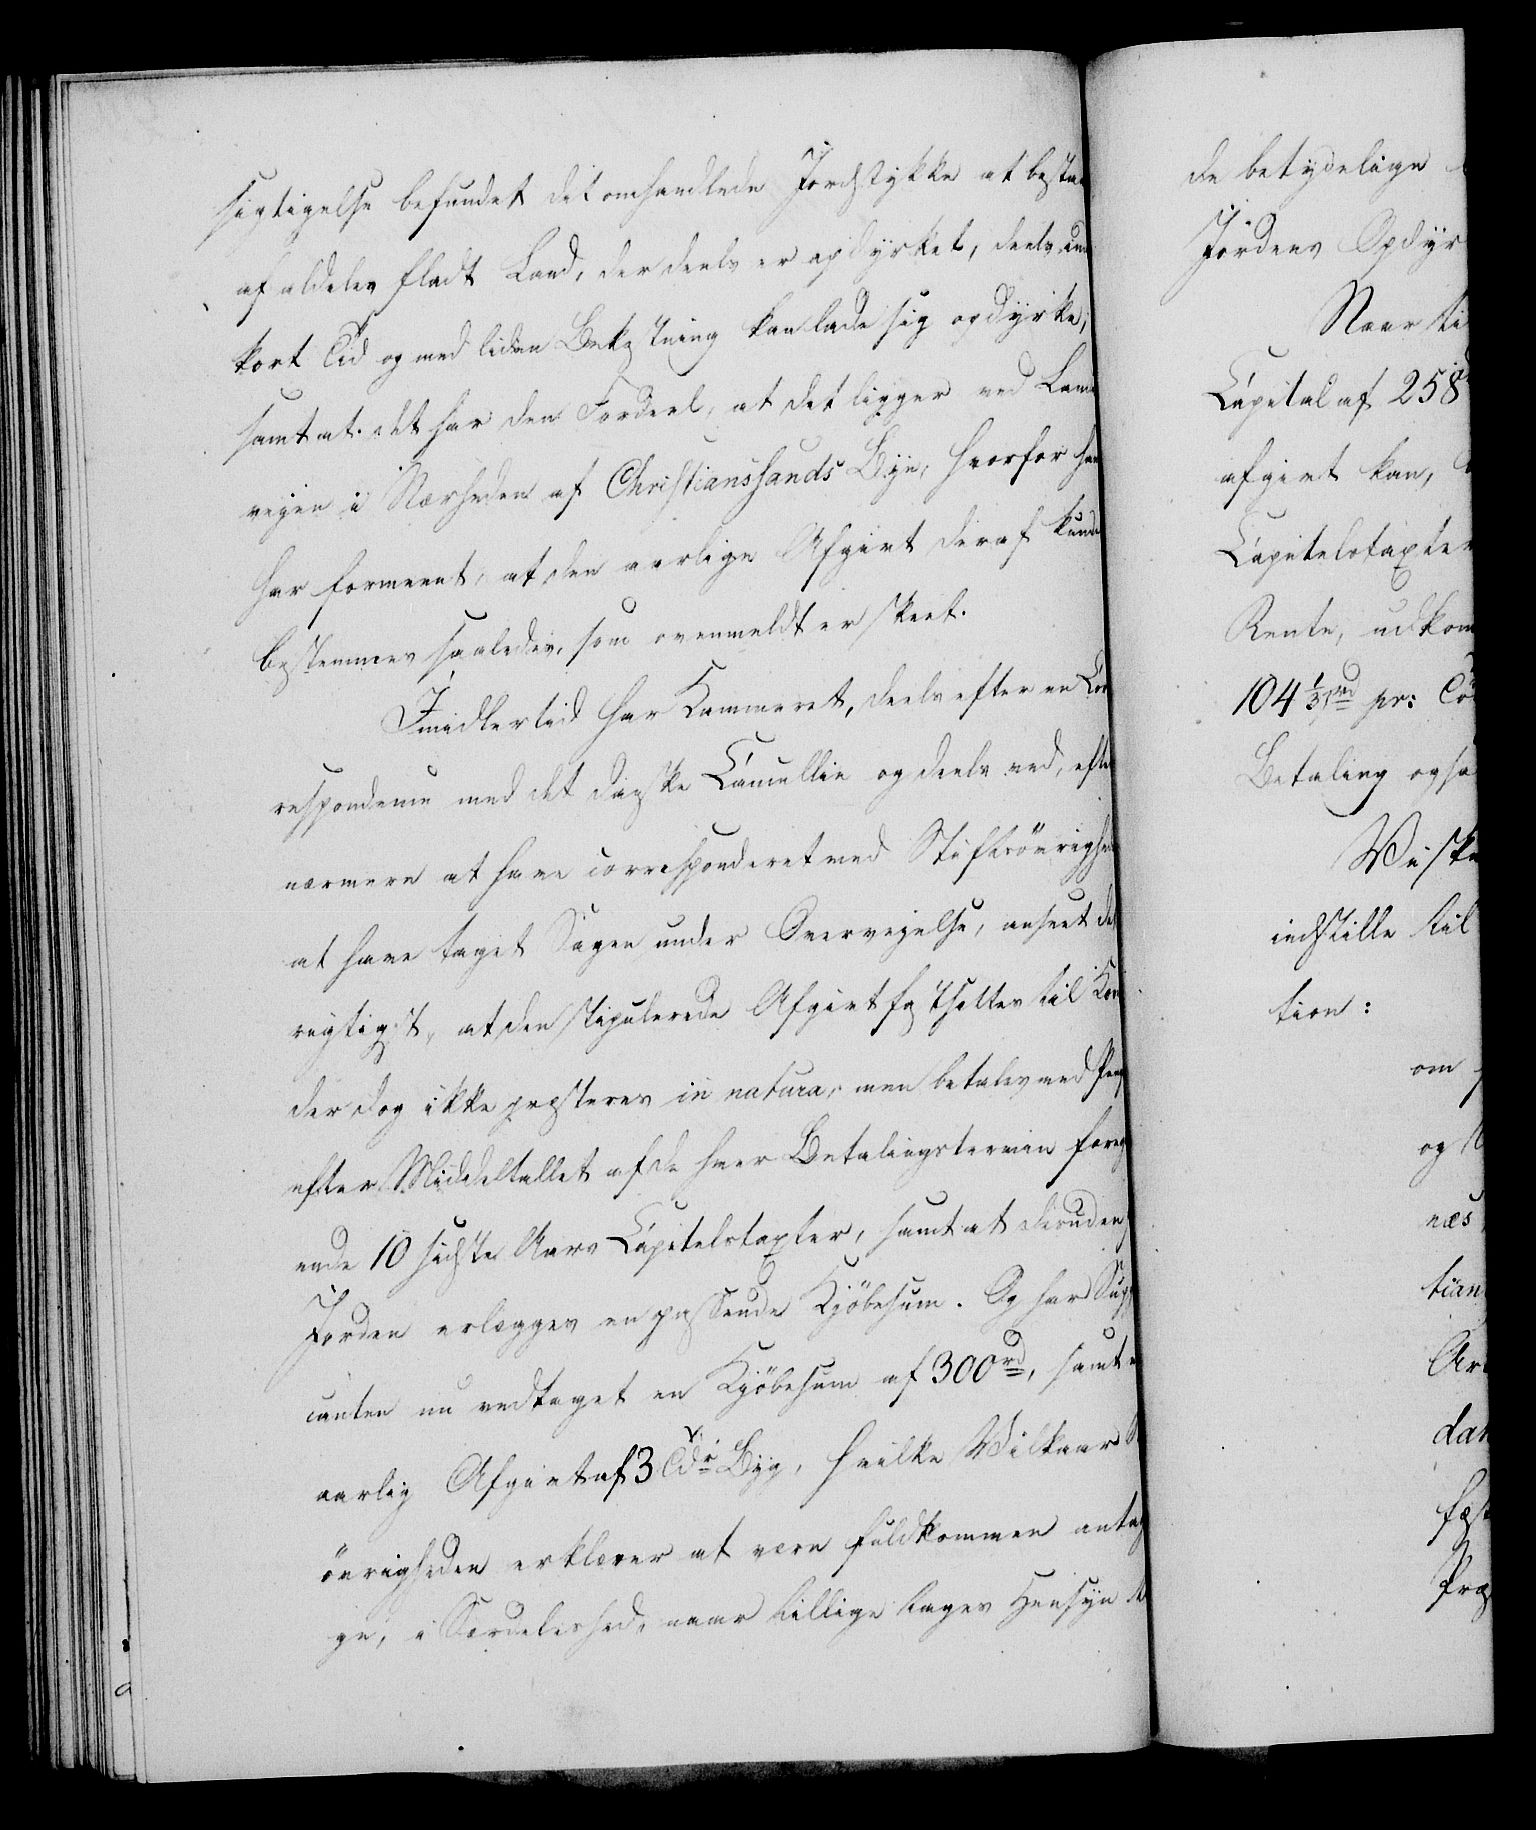 sigtigelse befundet det omhandlede Jordstykke at bestaa
af aldeles fladt Land, der deels er opdyrket, deels
kort Tid og med liden Bekostning kan lade sig opdyrke,
samt at det har den Fordeel, at det ligger ved Lande
vejen i Nærheden af Christianssands Bye, hvorfor han
har formeent, at den aarlige Afgivt deraf kunde
bestemmes saaledes, som ovenmeldt er skeet.
Imidlertid har Kammeret, deels efter en Cor
respondence med det danske Cancellie og deels ved, efter
nærmere at have corresponderet med Stiftsövrighe
at have taget Sagen under Overvejelse, anseet det
rigtigst, at den stipulerede Afgivt fastsættes til Korn
der dog ikke præsteres in natura, men betales med Peng
efter Middeltallet af de hver Betalingstermin foreg
ende 10 sidste Aars Capitelstaxter, samt at desuden
Jorden erlægges en passende Kjöbesum. Og har Supp
canten nu vedtaget en Kjöbesum af 300 rd, samt
aarlig Afgivt af 3 Tdr Byg, hvilke Vilkaar
övrigheden erklærer at være fuldkommen antag
ge, i Særdeleshed, naar tillige tages Hensyn
de betydelige
Jordens Opdyr
Naar
Capital af 258
afgivt kan,
Capitelstaxter
Rente, udkom
104 1/3 rd pr:
Betaling ogsaa
Vi ska
indstille til
tion:
om
og
næs
tian
dan
fæst